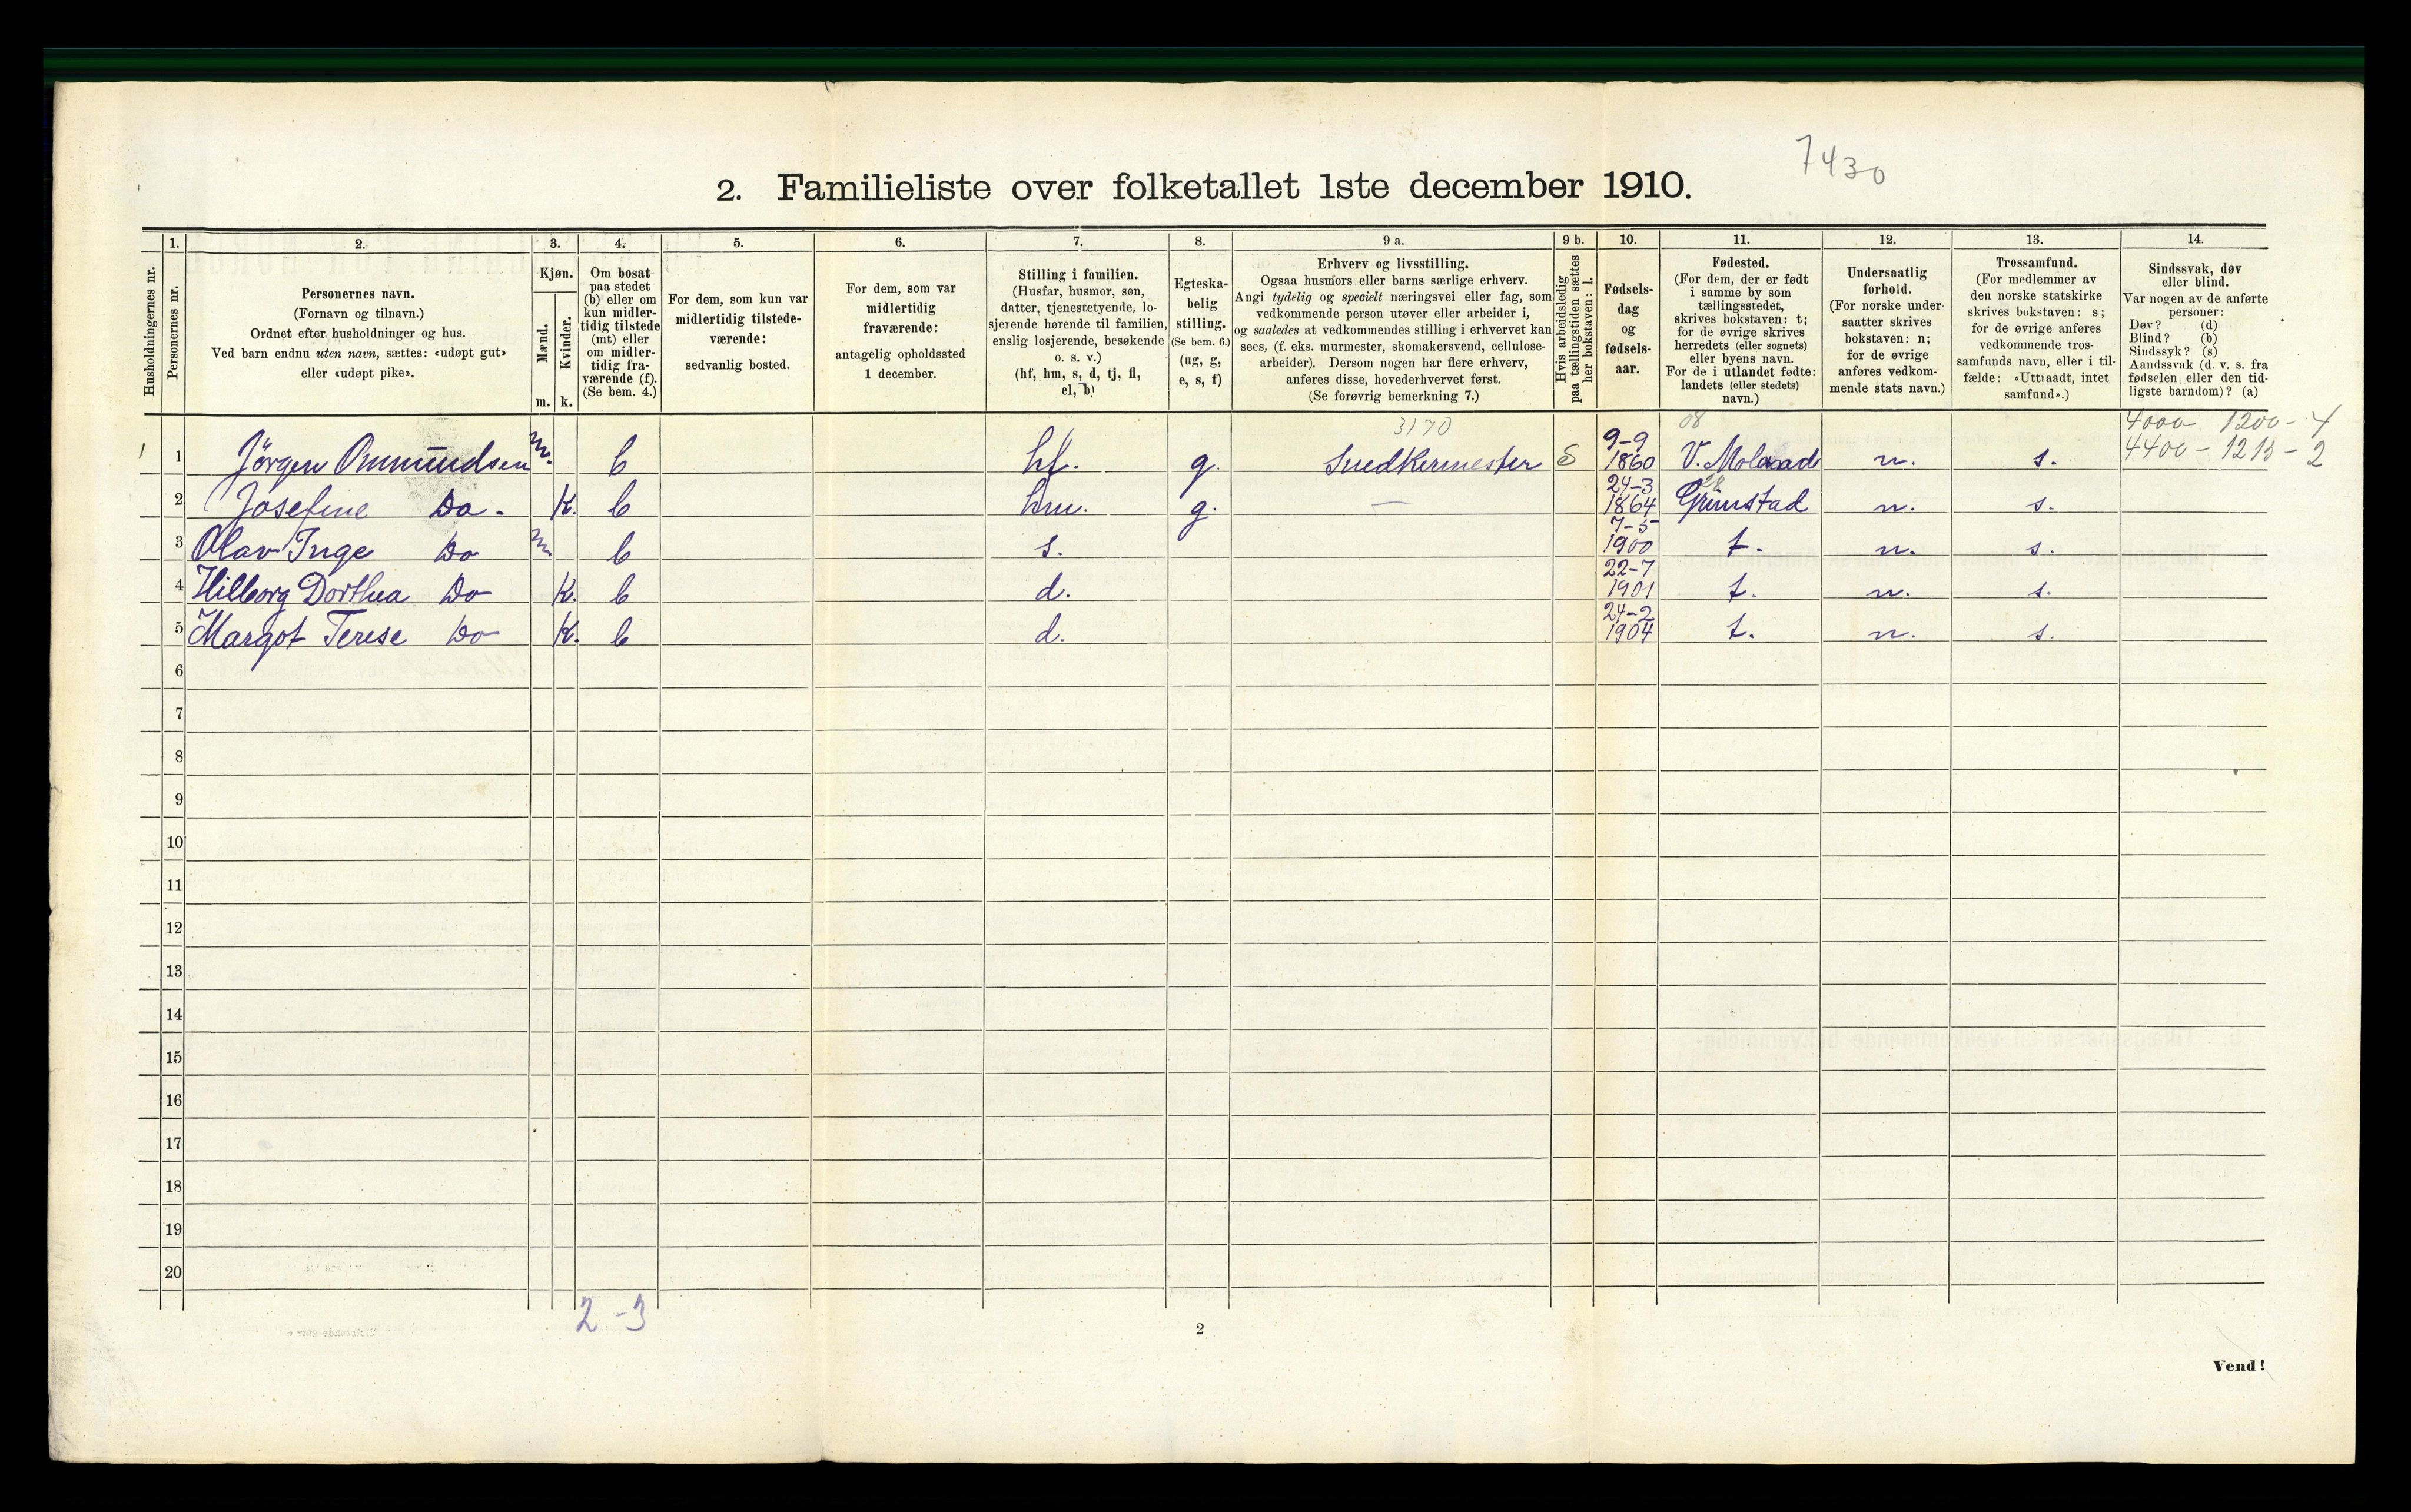 7430
2. Familieliste over folketallet 1ste december 1910.
Husholdningernes nr.
1.
Personernes nr.
2.
Personernes navn.
(Fornavn og tilnavn.)
Ordnet efter husholdninger og hus.
Ved barn endnu uten navn, sættes: «udøpt gut»
eller «udøpt pike».
3.
Kjøn.
Mænd.
Kvinder.
m. k.
4.
Om bosat
paa stedet
(b) eller om
kun midler-
tidig tilstede
(mt) eller
om midler-
tidig fra-
værende (f).
(Se bem. 4.)
5.
For dem, som kun var
midlertidig tilstede-
værende:
sedvanlig bosted.
6.
For dem, som var
midlertidig
fraværende:
antagelig opholdssted
1 december.
7.
Stilling i familien.
(Husfar, husmor, søn,
datter, tjenestetyende, lo-
sjerende hørende til familien,
enslig losjerende, besøkende
o. s. v.)
(hf, hm, s, d, tj, fl,
el, b)
8.
Egteska-
belig
stilling.
(Se bem. 6.)
(ug, g,
e, s, f)
9 a.
Erhverv og livsstilling.
Ogsaa husmors eller barns særlige erhverv.
Angi tydelig og specielt næringsvei eller fag, som
vedkommende person utøver eller arbeider i,
og saaledes at vedkommendes stilling i erhvervet kan
sees, (f. eks. murmester, skomakersvend, cellulose-
arbeider). Dersom nogen har flere erhverv,
anføres disse, hovederhvervet først.
(Se forøvrig bemerkning 7.)
9 b.
Hvis arbeidsledig
paa tællingstiden sættes
her bokstaven: l.
10.
Fødsels-
dag
og
fødsels-
aar.
11.
Fødested.
(For dem, der er født
i samme by som
tællingsstedet,
skrives bokstaven: t;
for de øvrige skrives
herredets (eller sognets)
eller byens navn.
For de i utlandet fødte:
landets (eller stedets)
navn.)
12.
Undersaatlig
forhold.
(For norske under-
saatter skrives
bokstaven: n;
for de øvrige
anføres vedkom-
mende stats navn.)
13.
Trossamfund.
(For medlemmer av
den norske statskirke
skrives bokstaven: s;
for de øvrige anføres
vedkommende tros-
samfunds navn, eller i til-
fælde: «Uttraadt, intet
samfund».)
14.
Sindssvak, døv
eller blind.
Var nogen av de anførte
personer:
Døv? (d)
Blind? (b)
Sindssyk? (s)
Aandssvak (d. v. s. fra
fødselen eller den tid-
ligste barndom)? (a)
3170 08 4000 - 1200 - 4
1 1 Jörgen Ommundsen m. b hf. g. Snedkermester S 9-9 1860 V. Moland n. s. 4400 - 1215 - 2
28
2 Josefine Do. K. b hm. g. — 24-3 1864 Grimstad n. s.
3 Olav Inge Do m b s. 7-5 1900 t. n. s.
4 Hilborg Dorthea Do K. b d. 22-7 1901 t. n. s.
5 Margot Terese Do K. b d. 24-2 1904 t. n. s.
6
7
8
9
10
11
12
13
14
15
16
17
18
19
20
2 - 3
2
Vend!